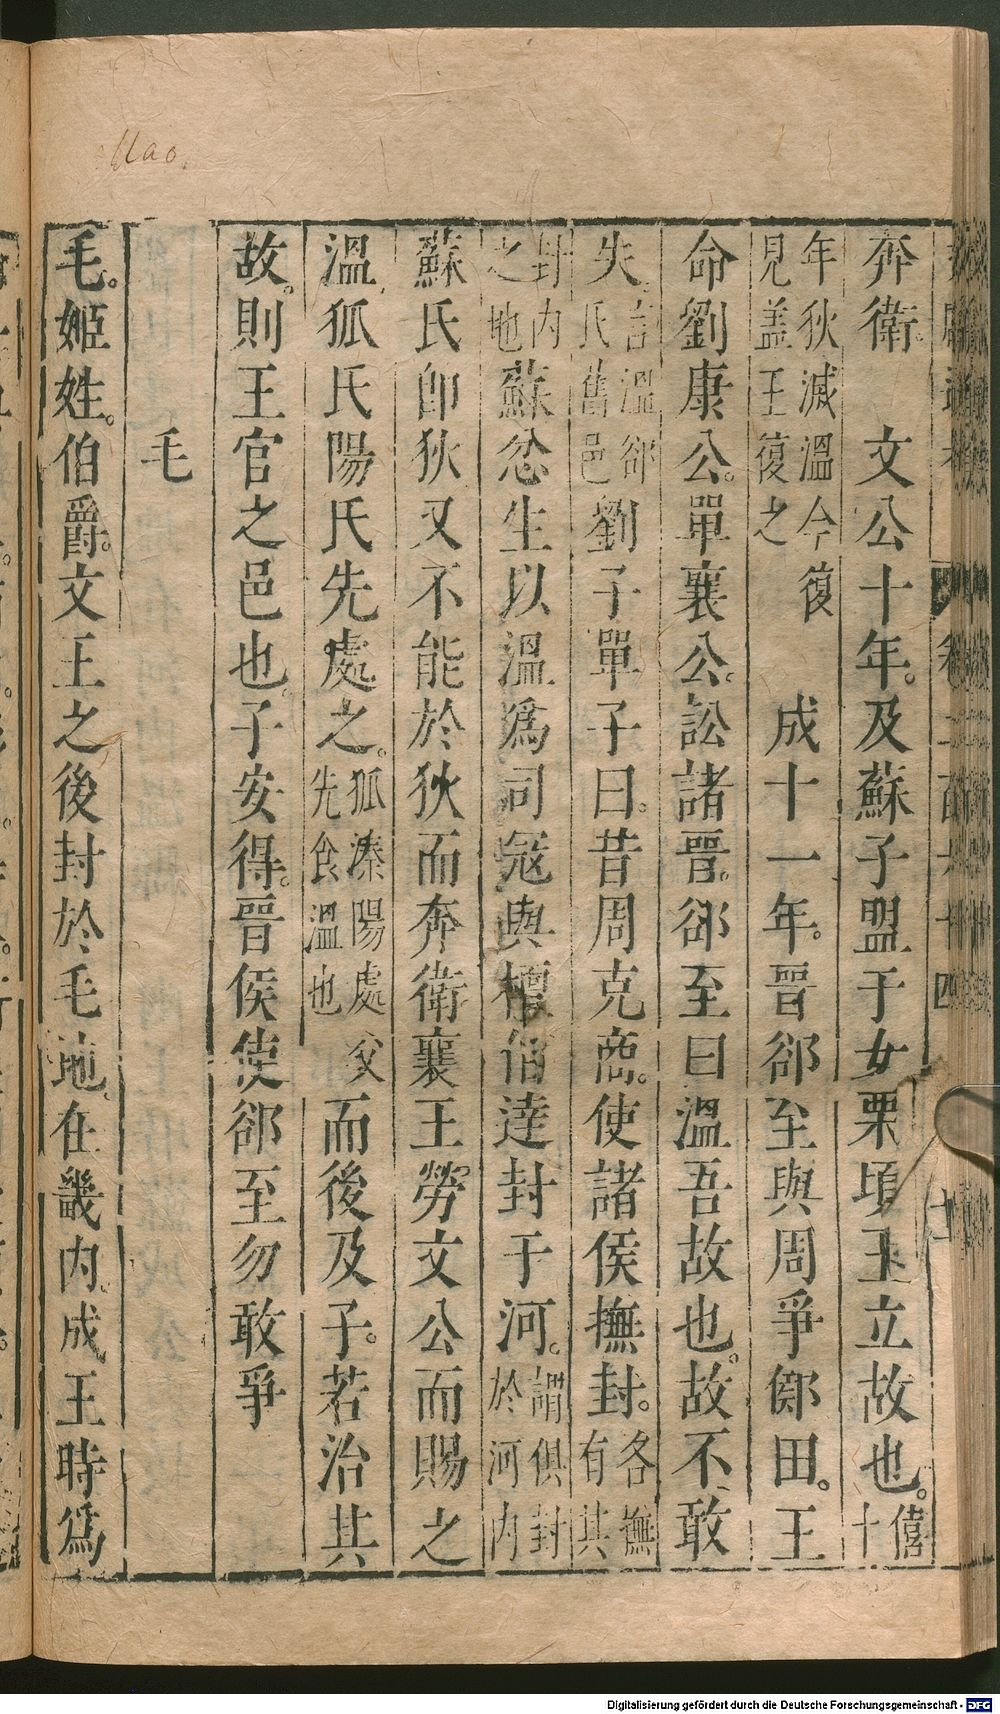 Mao
奔衛。　文公十年。及蘇子盟于女栗頃王立故也。僖十
年狄滅溫今復見蓋王復之　成十一年。晉郤至與周爭鄇田。王
命劉康公。單襄公。訟諸晉。郤至曰溫吾故也。故不敢
失。言溫郤氏舊邑劉子單子曰。昔周克商。使諸侯撫封。各撫有其
封內之地蘇忿生以溫爲司寇與檀伯達封于河。謂俱封於河內
蘇氏卽狄又不能於狄而奔衛襄王勞文公而賜之
溫狐氏陽氏先處之。狐溱陽處父先食溫也而後及子。若治其
故。則王官之邑也。子安得。晉侯使郤至勿敢爭
毛
毛。姬姓。伯爵。文王之後封於毛地。在畿內。成王時爲
Digitalisierung gefördert durch die Deutsche Forschungsgemeinschaft - DFG